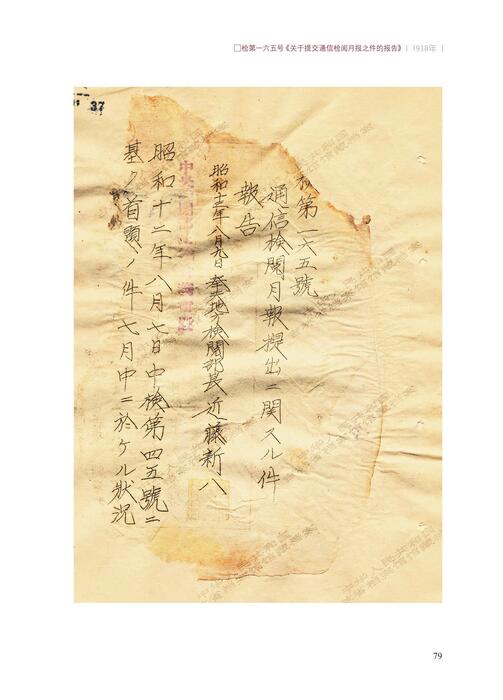 □检第一六五号《关于提交通信检阅月报之件的报告》 | 1938年 |
37
检第一六五號
通信検閲月報提出ニ関スル件
報告
昭和十二年八月九日 奉天地方検閲部長近藤新八
昭和十二年八月七日中検第四五號ニ
基ク首題ノ件七月中ニ於ケル狀況
79